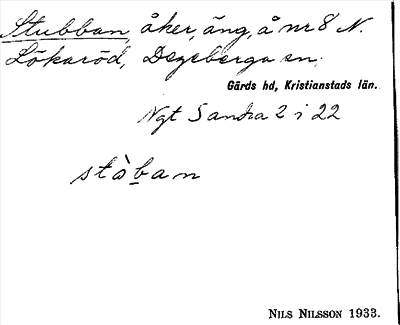 Stubban, åker, äng, å nr 8 N.
Lökaröd, Degeberga sn.
Gärds hd, Kristianstads län.
Ngt Sandra 2 i 22
stòban
NILS NILSSON 1933.